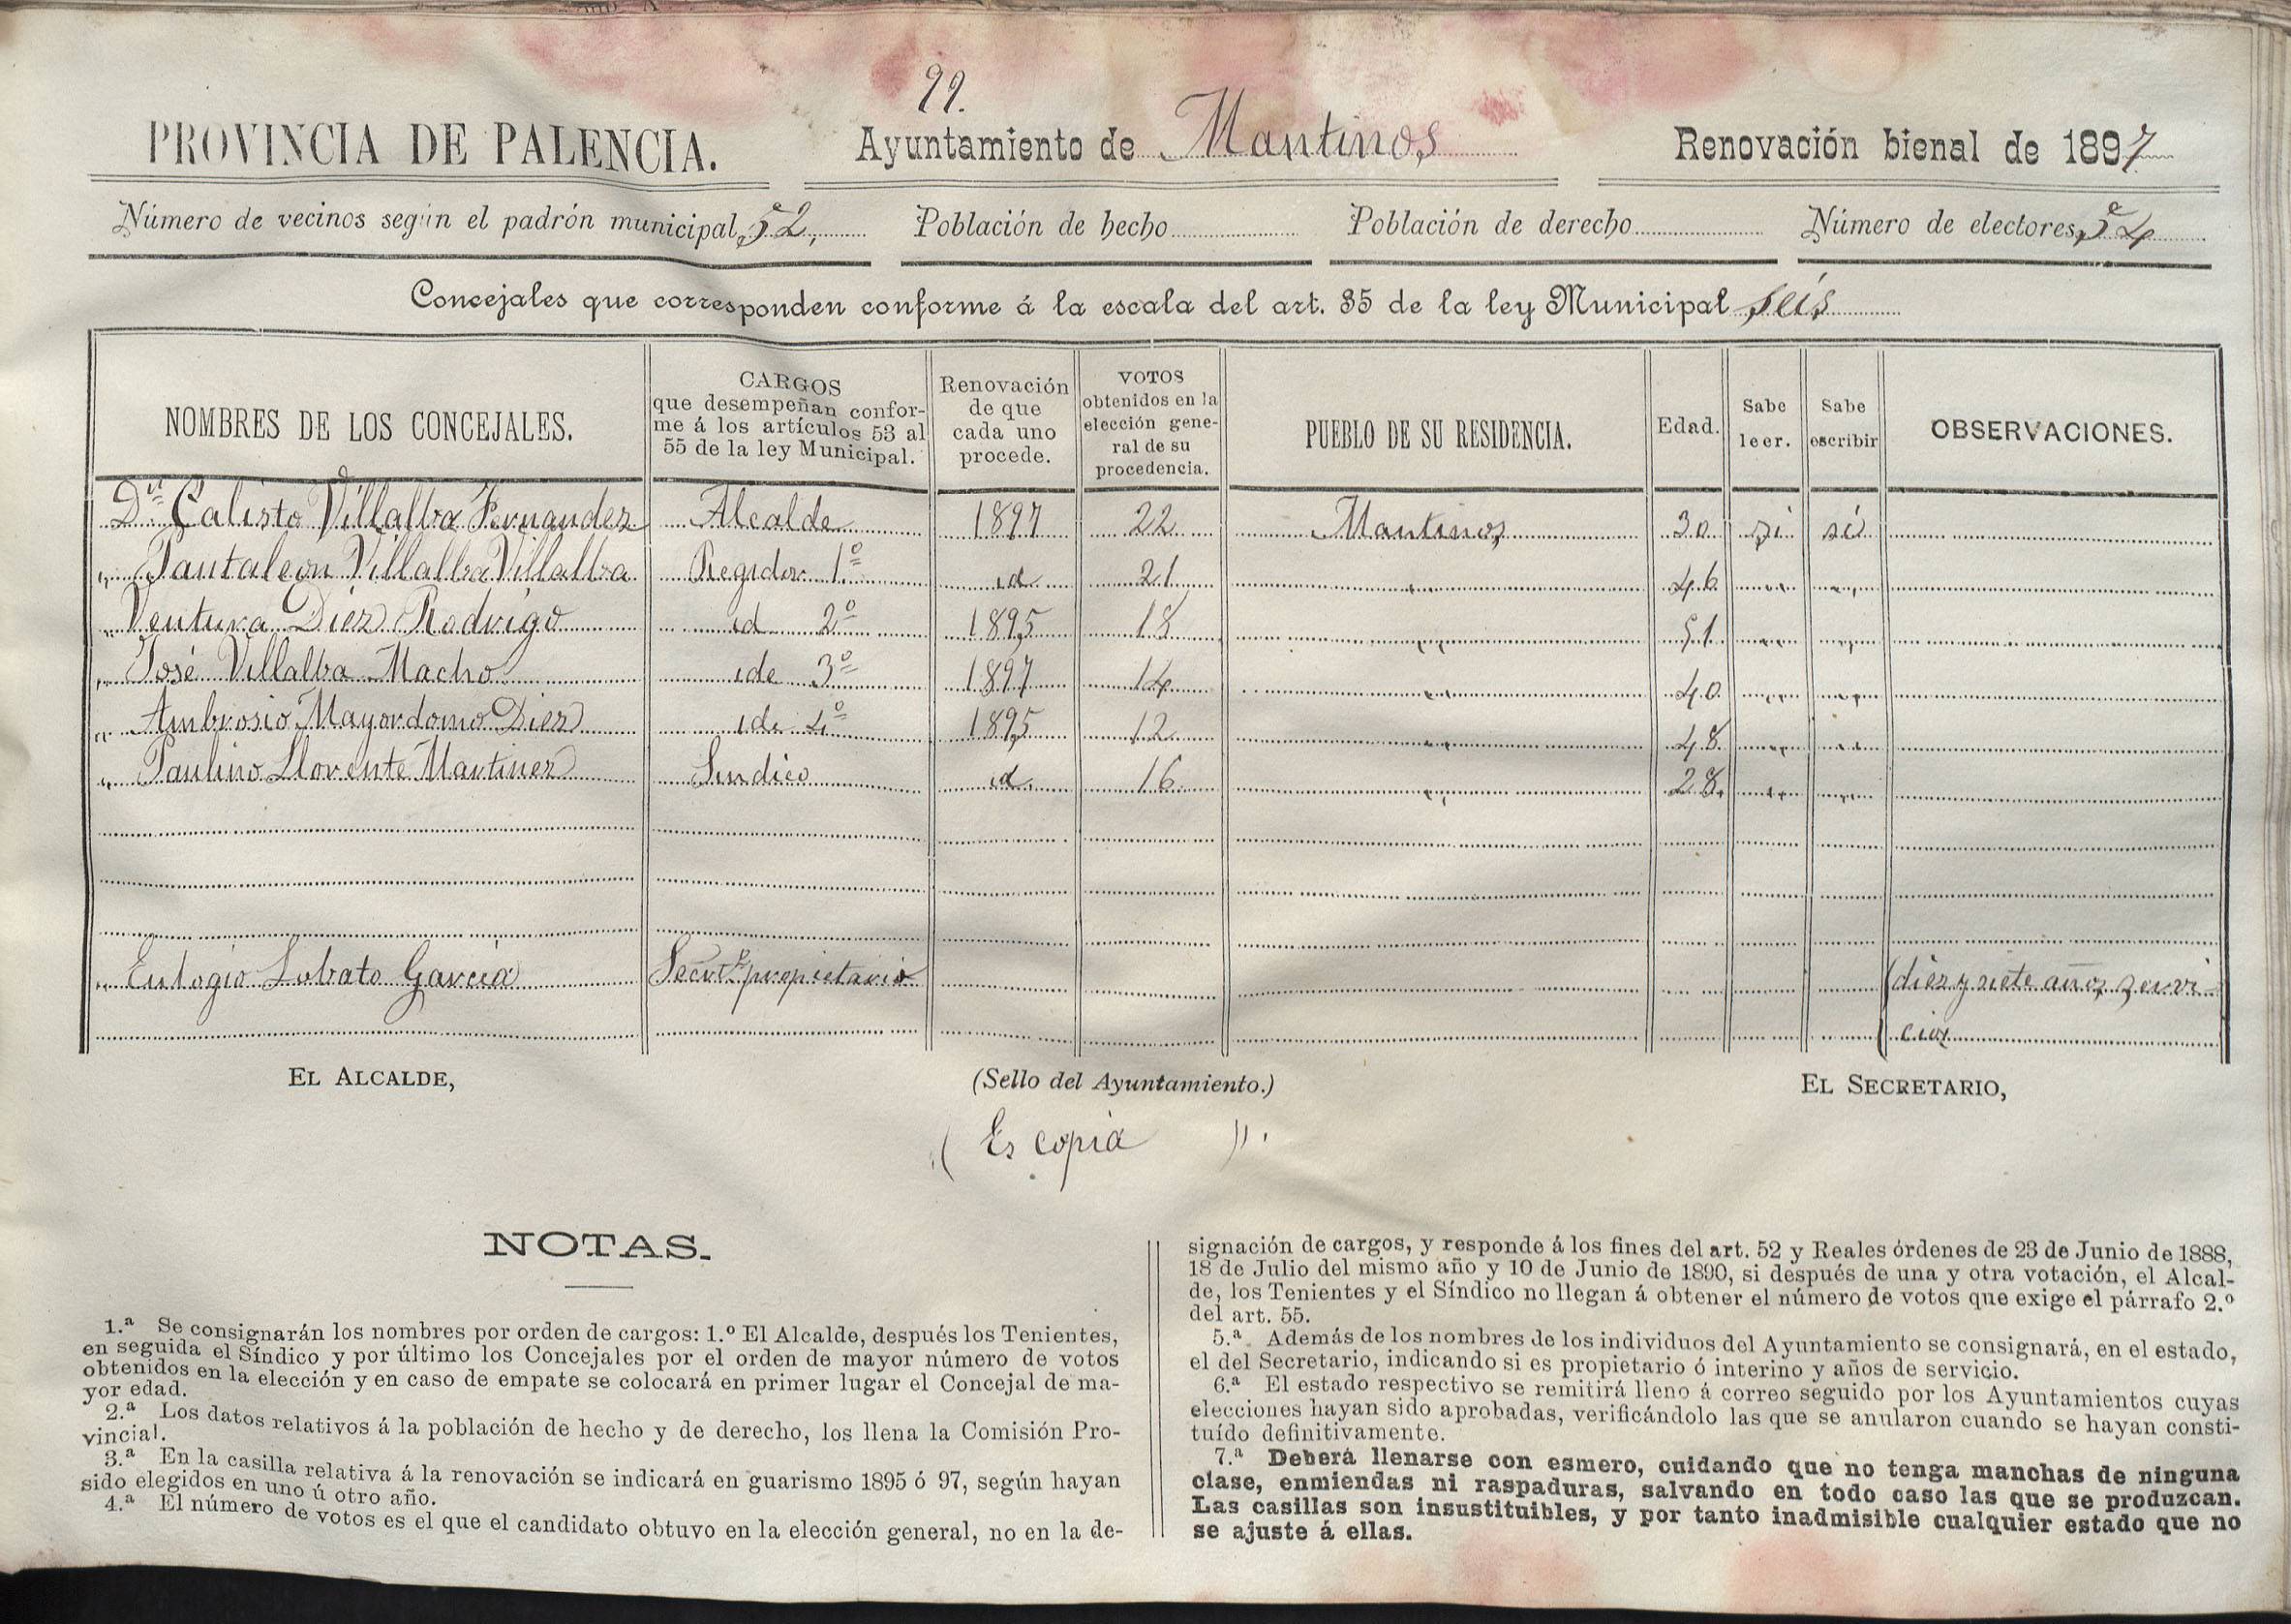 99.
PROVINCIA DE PALENCIA. Ayuntamiento de Mantinos Renovación bienal de 1897
Número de vecinos según el padrón municipal 52, Población de hecho Población de derecho Número de electores 54
Concejales que corresponden conforme á la escala del art. 35 de la ley Municipal seis
NOMBRES DE LOS CONCEJALES. CARGOS que desempeñan confor- me á los artículos 53 al 55 de la ley Municipal. Renovación de que cada uno procede. VOTOS obtenidos en la elección gene- ral de su procedencia. PUEBLO DE SU RESIDENCIA. Edad. Sabe leer. Sabe escribir OBSERVACIONES.
Dn Calisto Villalba Fernandez Alcalde 1897 22 Mantinos 30 si si
" Pantaleon Villalba Villalba Regidor 1º id 21 " 46 " "
" Ventura Diez Rodrigo id 2º 1895 18 " 51 " "
" José Villalba Macho ide 3º 1897 14 " 40 " "
" Ambrosio Mayordomo Diez ide 4º 1895 12 " 48 " "
" Paulino Llorente Martinez Sindico id. 16 " 28 " "
" Eulogio Lobato Garcia Secrt.º propietario (diez y siete años servi-
cios
EL ALCALDE, (Sello del Ayuntamiento.) EL SECRETARIO,
( Es copia ).
NOTAS.
1.ª Se consignarán los nombres por orden de cargos: 1.º El Alcalde, después los Tenientes,
en seguida el Síndico y por último los Concejales por el orden de mayor número de votos
obtenidos en la elección y en caso de empate se colocará en primer lugar el Concejal de ma-
yor edad.
2.ª Los datos relativos á la población de hecho y de derecho, los llena la Comisión Pro-
vincial.
3.ª En la casilla relativa á la renovación se indicará en guarismo 1895 ó 97, según hayan
sido elegidos en uno ú otro año.
4.ª El número de votos es el que el candidato obtuvo en la elección general, no en la de-
signación de cargos, y responde á los fines del art. 52 y Reales órdenes de 23 de Junio de 1888,
18 de Julio del mismo año y 10 de Junio de 1890, si después de una y otra votación, el Alcal-
de, los Tenientes y el Síndico no llegan á obtener el número de votos que exige el párrafo 2.º
del art. 55.
5.ª Además de los nombres de los individuos del Ayuntamiento se consignará, en el estado,
el del Secretario, indicando si es propietario ó interino y años de servicio.
6.ª El estado respectivo se remitirá lleno á correo seguido por los Ayuntamientos cuyas
elecciones hayan sido aprobadas, verificándolo las que se anularon cuando se hayan consti-
tuído definitivamente.
7.ª Deberá llenarse con esmero, cuidando que no tenga manchas de ninguna
clase, enmiendas ni raspaduras, salvando en todo caso las que se produzcan.
Las casillas son insustituibles, y por tanto inadmisible cualquier estado que no
se ajuste á ellas.